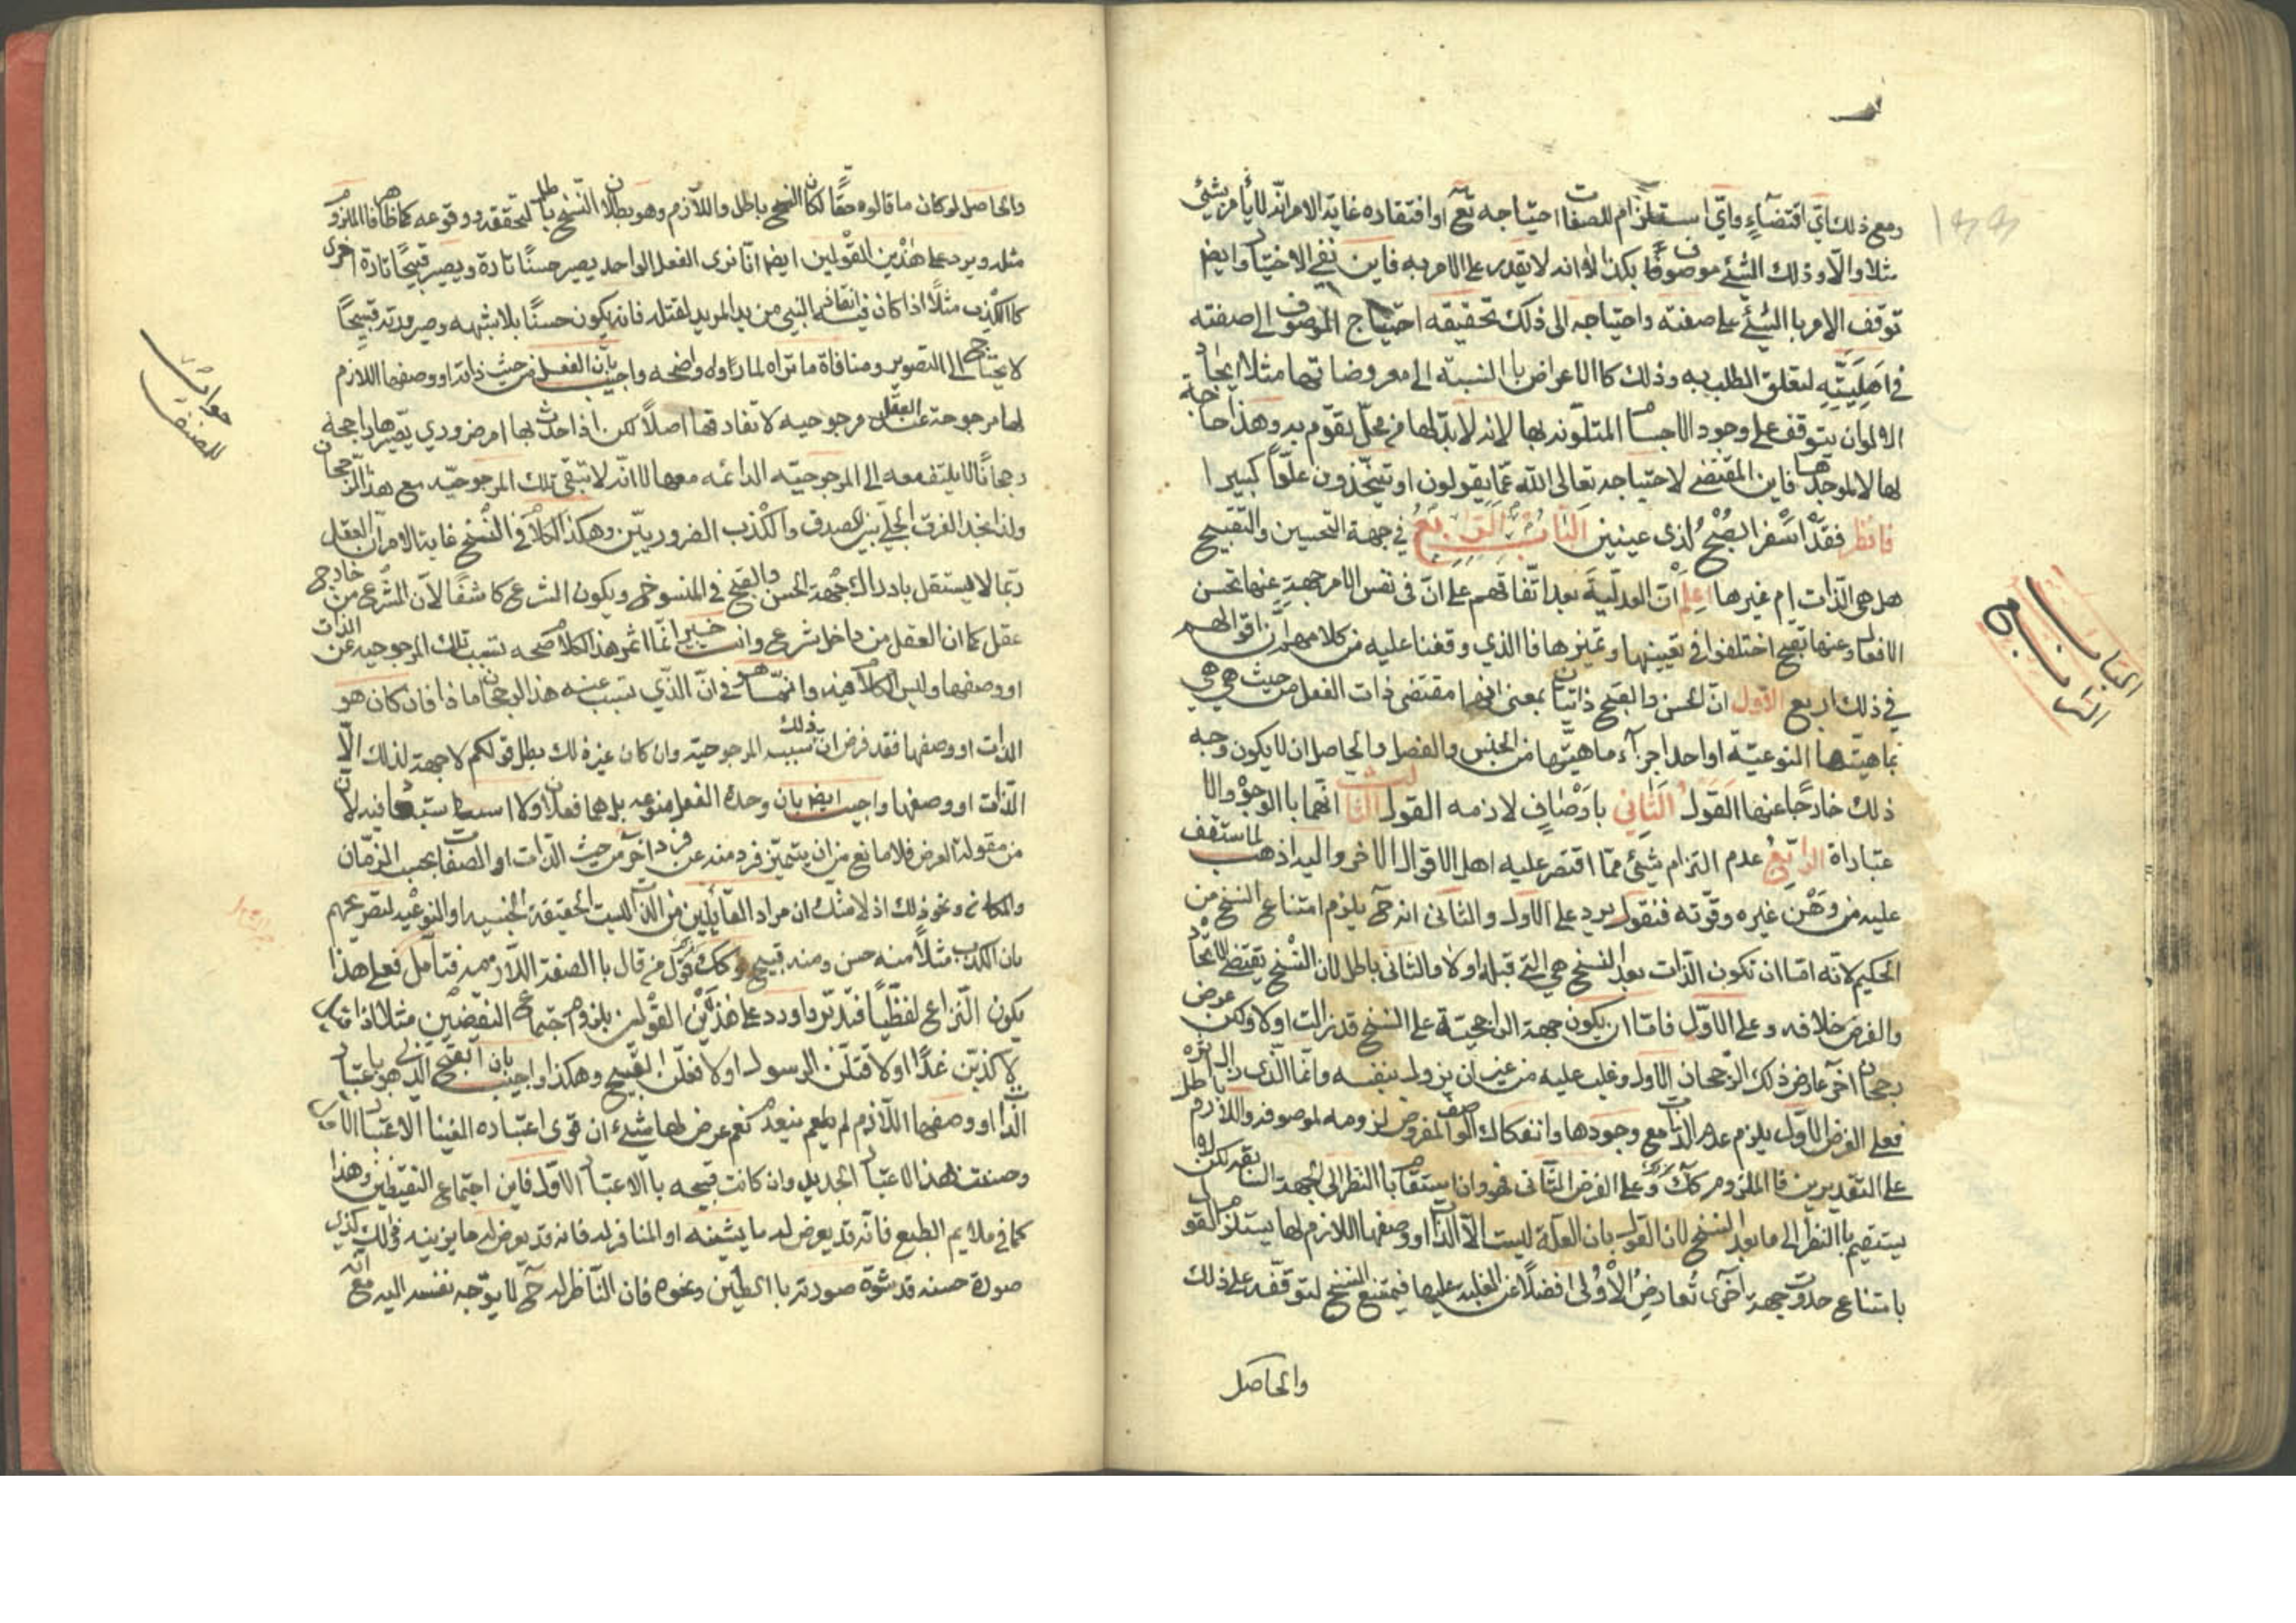 ومع ذلك اي اقتضاء واي استلزام للصفات احتياجه تع او افتقاره غاية الامر انه لا يامر بشيء
مثلا والا وذلك الشيء موصوف بكذا لا انه لا يقدر على الامر به فاين نفي الاختيار وايض
توقف الامر بالشيء على صفته واحتياجه الى ذلك تحقيقه احتياج الموصوف الى صفته
في اهليته لتعلق الطلب به وذلك كالاعراض بالنسبة الى معروضاتها مثلا ايجاد
الالوان يتوقف على وجود الاجسام المتلونه بها لانه لا بد لها من محل تقوم به وهذا حاجة
لها لا لموجدها فاين المقتضي لاحتياجه تعالى الله عما يقولون او يتخذون علوا كبيرا
فانظر فقد اسفر الصبح لذي عينين الباب الرابع في جهة التحسين والتقبيح
هل هي الذات ام غيرها اعلم ان العدلية بعد اتفاقهم على ان في نفس الامر جهة عنها تحسن
الافعال وعنها تقبح اختلفوا في تعيينها وتميزها فالذي وقفنا عليه من كلامهم ان اقوالهم
في ذلك اربع الاول ان الحسن والقبح ذاتيان بمعنى انهما مقتضى ذات الفعل من حيث هي هي
بماهيتها النوعية او احد اجزآء ماهيتها من الجنس والفصل والحاصل ان لا يكون وجه
ذلك خارجا عنها القول الثاني باوصاف لازمه القول الثالث انهما بالوجوه والا
عتبارات الرابع عدم التزام شيء مما اقتصر عليه اهل الاقوال الاخر واليه اذهب لما ستقف
عليه من وهن غيره وقوته فنقول يرد على الاول والثاني انه ح يلزم امتناع النسخ من
الحكيم لانه اما ان تكون الذات بعد النسخ هي التي قبله او لا والثاني باطل لان النسخ يقتضي الاتحاد
والفرض خلافه وعلى الاول فاما ان يكون جهة الراجحية على النسخ قد زالت او لا ولكن عرض
رجحان آخر عارض ذلك الرجحان الاول وغلب عليه من غير ان يزول بنفسه وانما الذي زال اثره
فعلى الفرض الاول يلزم عدم الذات مع وجودها وانفكاك الوصف المفروض لزومه لموصوفه واللازم باطل
على التقديرين فالملزوم كك وعلى الفرض الثاني فهو وان استقام بالنظر الى الجهة السابقه لكن لا
يستقيم بالنظر الى ما بعد النسخ لان القول بان العلة ليست الا الذات او وصفها اللازم لها يستلزم القول
بامتناع حدوث جهة اخرى تعارض الاولى افضلا عن الغلبه عليها فيمتنع النسخ لتوقفه على ذلك
والحاصل
الباب
الرابع
والحاصل لو كان ما قالوه حقا لكان النسخ باطل واللازم وهو بطلان النسخ باطل لتحققه ووقوعه كما هو ظ فالملزوم
مثله ويرد على هذين القولين ايضا انا نرى الفعل الواحد يصير حسنا تارة ويصير قبيحا تارة اخرى
كالكذب مثلا اذا كان فيه انقاذ النبي من يد المريد لقتله فانه يكون حسنا بلا شبهه وصيرورته قبيحا
لا يحتاج الى التصوير ومنافاة ما تراه لما راوه واضحه واجيب بان الفعل من حيث ذاته او وصفها اللازم
لها مرجوحة عند العقل مرجوحيه لا تفارقها اصلا لكن اذا حدث بها امر ضروري يصيرها راجحة
رجحانا لا يلتفت معه الى المرجوحيه الدائمه معها لا انه لا تبقى تلك المرجوحيه مع هذا الرجحان
ولذا نجد الفرق الجلي بين الصدق والكذب الضروريين وهكذا الكلام في النسخ غاية الامر ان العقل
ربما لا يستقل بادراك جهة الحسن والقبح في المنسوخ ويكون الشرع كاشفا لان الشرع من خارج
عقل كما ان العقل من داخل شرع وانت خبير انما اثمر هذا الكلام صحه تسبب تلك المرجوحيه عن الذات
او وصفها وليس الكلام فيه وانما هو في ان الذي تسبب عنه هذا الرجحان ماذا فان كان هو
الذات او وصفها فقد فرض ان ذلك سبب المرجوحيه وان كان غيره لك بطل قولكم لا جهة لذلك الا
الذات او وصفها واجيب ايضا بان وحدة الفعل ممنوعه بل هما فعلان ولا استبعاد فيه لان
من مقولة العرض فلا مانع من ان يتميز فرد منه عن فرد آخر من حيث الذات او الصفات بحسب الزمان
والمكان ونحو ذلك اذ لا شك ان مراد القائلين من الذات ليست الحقيقة الجنسيه او النوعيه لتصريحهم
بان الكذب مثلا منه حسن ومنه قبيح وكك قول من قال بالصفة اللازمه فتامل فعلى هذا
يكون النزاع لفظيا فتدبر واورد على هذين القولين بلزوم اجتماع النقيضين مثلا اذا قال
لاكذبن غدا او لاقتلن الرسول او لافعلن القبيح وهكذا واجيب بان القبح الذي هو باعتبار
الذات او وصفها اللازم لم ينعدم نعم عرض لها شيء ان قوى اعتباره الغينا الاعتبار الاول
وصنعت هذا الاعتبار الجديد وان كانت قبيحه بالاعتبار الاول فاين اجتماع النقيضين وهذا
كما في ملايم الطبع فانه قد يعرض له ما يشينه او المنافر له فانه قد يعرض له ما يزينه وذلك كذي
صورة حسنه قد شوه صورته بالطين ونحوه فان الناظر له ح لا يوجه نفسه اليه مع انه
جواب
للمصنف